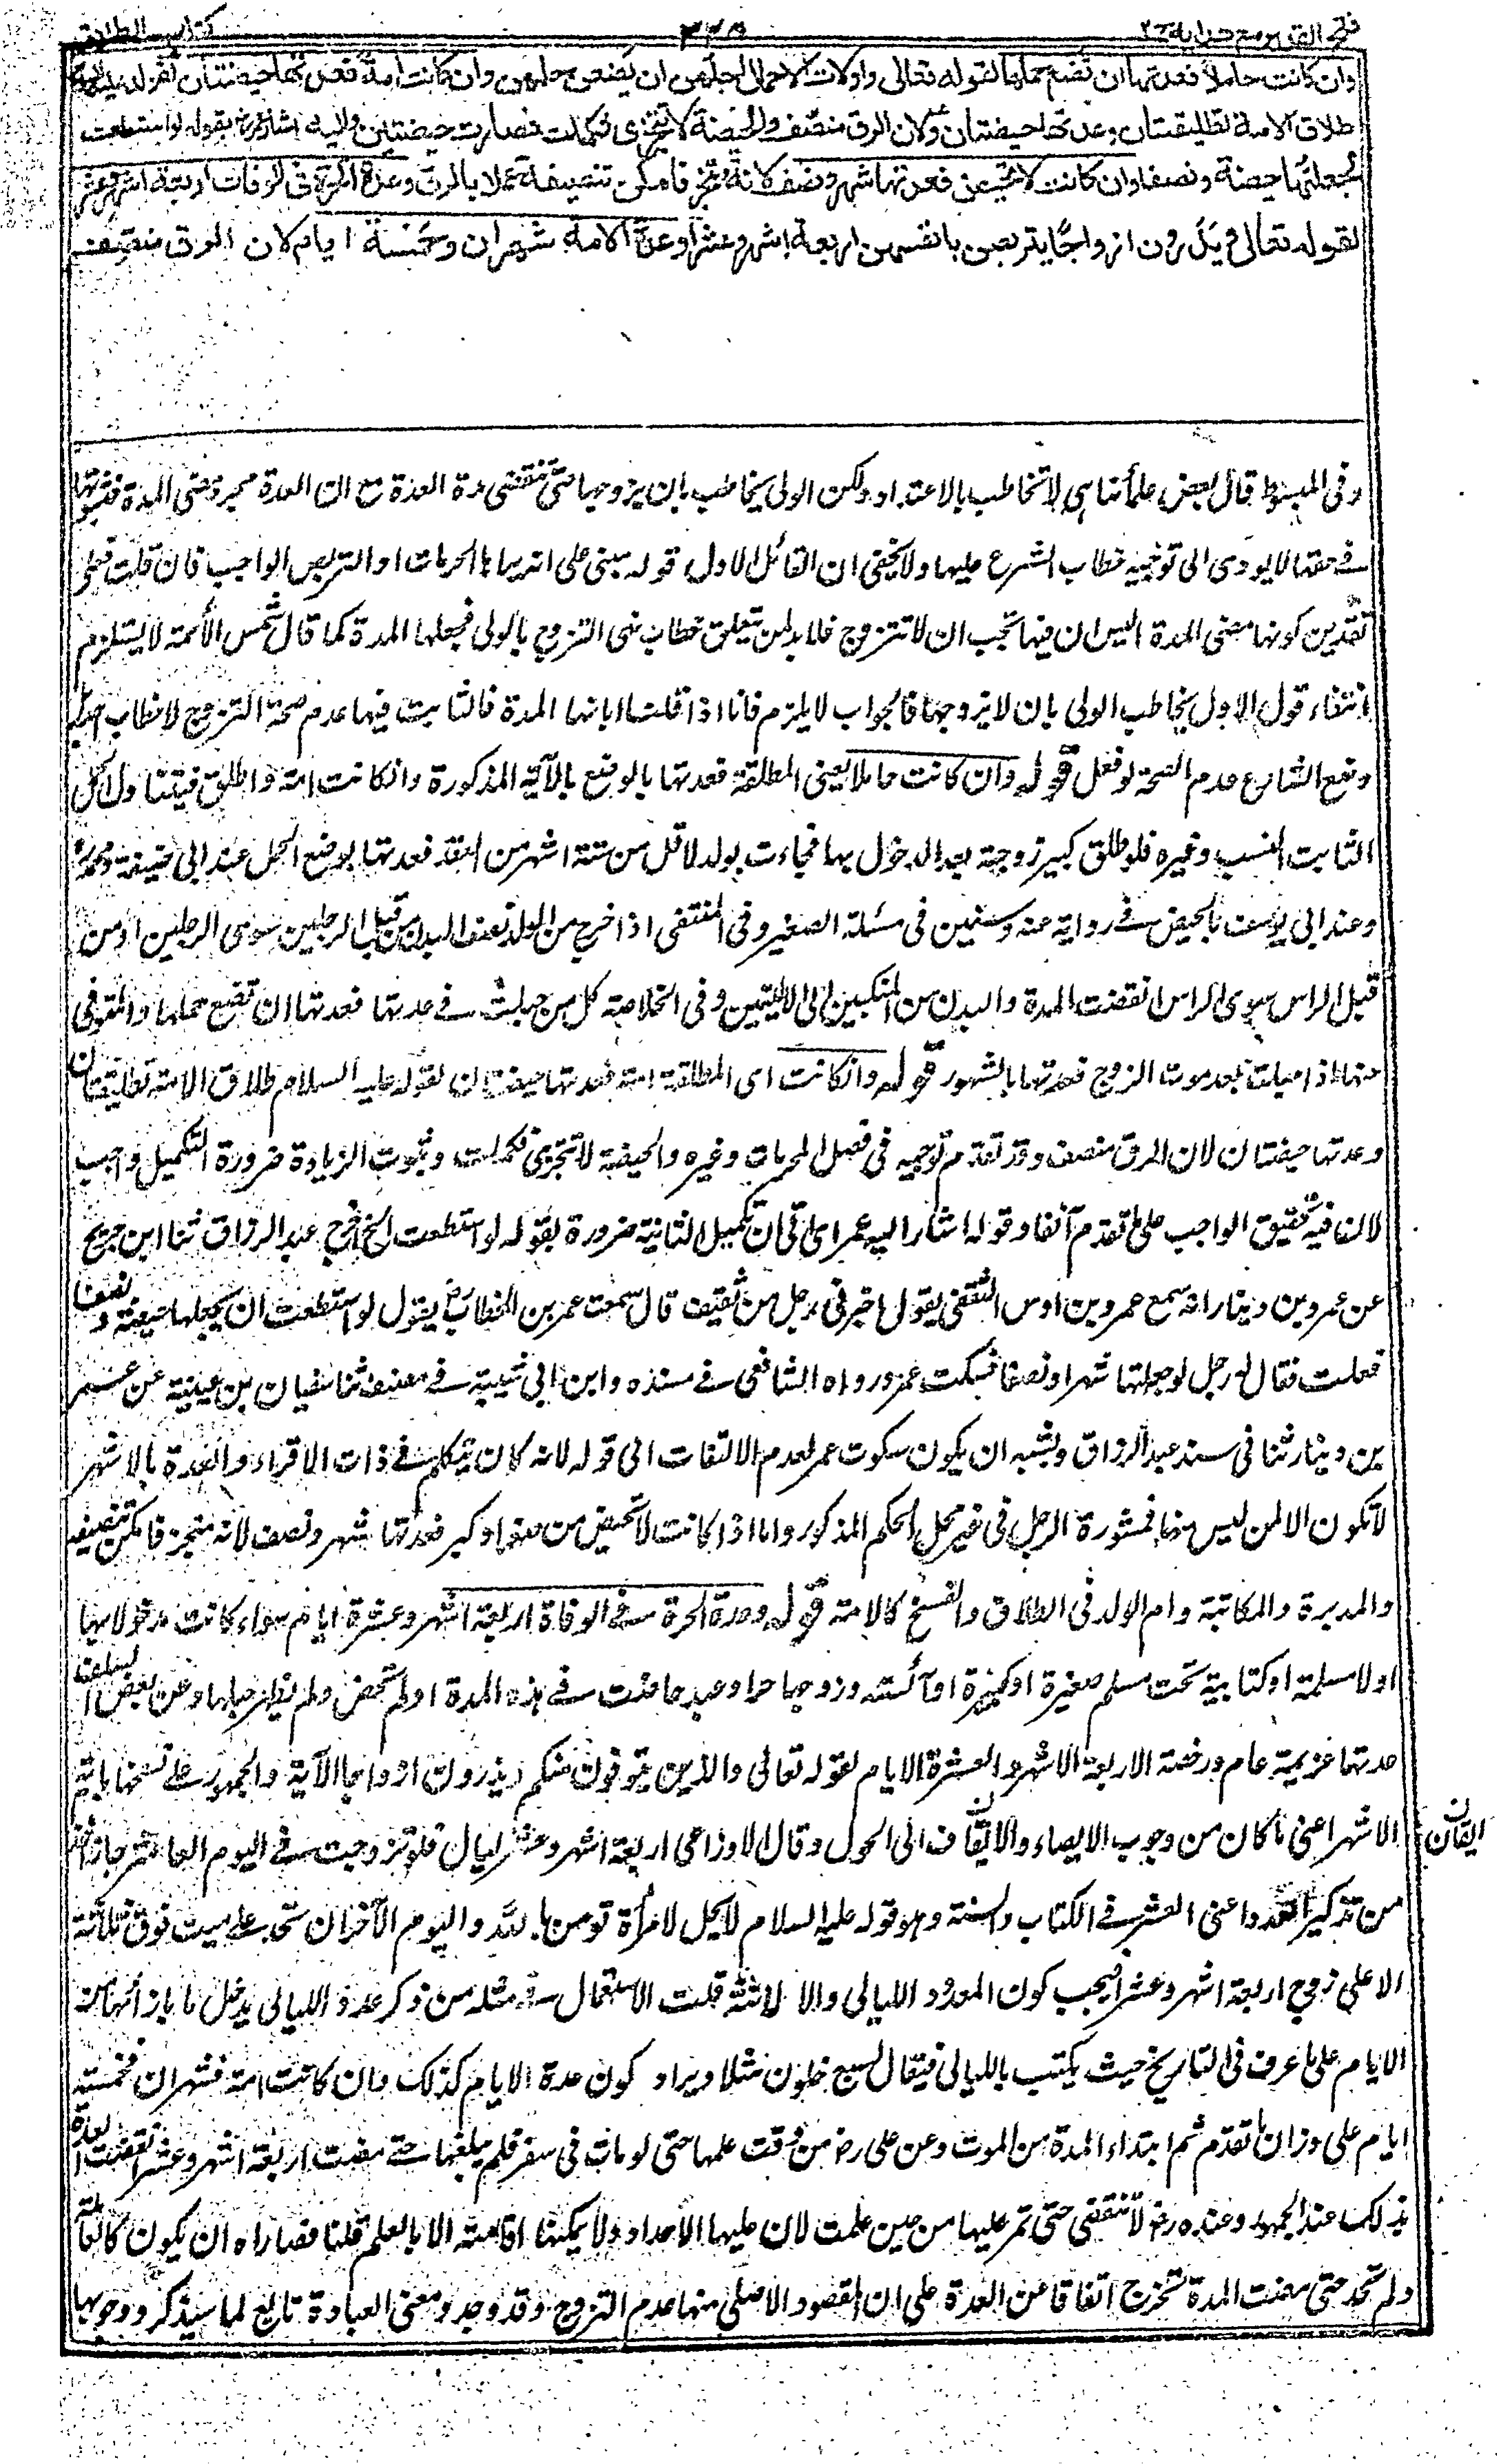 فتح القدير مع هداية ج٢
٣٣٥
كتاب الطلاق
وان كانت حاملا فعدتها ان تضع حملها لقوله تعالى واولات الاحمال اجلهن ان يضعن حملهن وان كانت امة فعدتها حيضتان لقوله عليه السلام
طلاق الامة تطليقتان وعدتها حيضتان ولان الرق منصف والحيضة لا تتجزى فكملت فصارت حيضتين واليه اشار عمر بقوله لو استطعت
لجعلتها حيضة ونصفا وان كانت لا تحيض فعدتها شهر ونصف لانه متجز فامكن تنصيفه عملا بالرق وعدة الحرة فى الوفات اربعة اشهر وعشر
لقوله تعالى ويذرون ازواجا يتربصن بانفسهن اربعة اشهر وعشرا وعدة الامة شهران وخمسة ايام لان الرق منصف
وفى المبسوط قال بعض علمائنا هى لا تخاطب بالاعتداد ولكن الولى يخاطب بان لا يزوجها حتى تنقضى مدة العدة مع ان العدة مجرد مضى المدة فثبوتها
فى حقها لا يؤدى الى توجيه خطاب الشرع عليها ولا يخفى ان القائل الاول قوله مبنى على انها الحرمات او التربص الواجب فان قلت فعلى
تقدير كونها مضى المدة اليس ان فيها يجب ان لا تتزوج فلا بد من تعلق خطاب نهى التزوج بالولى فجعلها المدة كما قال شمس الأئمة لا يستلزم
انتفاء قول الاول يخاطب الولى بان لا يزوجها فالجواب لا يلزم فانا اذا قلنا انها المدة فالثابت فيها عدم صحة التزوج لا خطاب احد بل
وضع الشارع عدم الصحة لو فعل قوله وان كانت حاملا يعنى المطلقة فعدتها بالوضع بالآية المذكورة وان كانت امة واطلق فيتناول الحمل
الثابت النسب وغيره فلو طلق كبير زوجته بعد الدخول بها فجاءت بولد لاقل من ستة اشهر من العقد فعدتها بوضع الحمل عند ابى حنيفة ومحمد
وعند ابى يوسف بالحيض فى رواية عنه وستبين فى مسئلة الصغير وفى المنتقى اذا خرج من الولد نصف البدن من قبل الرجلين سوى الرجلين او من
قبل الراس سوى الراس انقضت العدة والبدن من المنكبين الى الاليتين وفى الخلاصة كل من حبلت فى عدتها فعدتها ان تضع حملها والمتوفى
عنها اذا حبلت بعد موت الزوج فعدتها بالشهور قوله وان كانت اى المطلقة امة فعدتها حيضتان لقوله عليه السلام طلاق الامة تطليقتان
وعدتها حيضتان لان الرق منصف وقد تقدم توجيهه فى فصل المحرمات وغيره والحيضة لا تتجزى فكملت وثبوت الزيادة ضرورة التكميل واجب
لا لنفى تحقيق الواجب على ما تقدم آنفا وقوله اشار اليه عمر اى الى ان تكميل الثانية ضرورة بقوله لو استطعت الخ اخرج عبد الرزاق ثنا ابن جريج
عن عمرو بن دينار انه سمع عمرو بن اوس الثقفى يقول اخبرنى رجل من ثقيف قال سمعت عمر بن الخطاب رض يقول لو استطعت ان يجعلها حيضة ونصفا
فعلت فقال له رجل لو جعلتها شهرا ونصفا فسكت عمر ورواه الشافعى فى مسنده وابن ابى شيبة فى مصنفه ثنا سفيان بن عيينة عن عمرو
بن دينار ثنا فى سند عبد الرزاق ويشبه ان يكون سكوت عمر لعدم الالتفات الى قوله لانه كان يتكلم فى ذات الاقراء والعدة بالاشهر
لا تكون الا لمن ليس منها فمشورة الرجل فى غير محل الحكم المذكور واما اذا كانت لا تحيض من صغر او كبر فعدتها شهر ونصف لانه متجز فامكن تنصيفه
والمدبرة والمكاتبة وام الولد فى الطلاق والفسخ كالامة قوله وعدة الحرة فى الوفاة اربعة اشهر وعشرة ايام سواء كانت مدخولا بها
او لا مسلمة او كتابية تحت مسلم صغيرة او كبيرة او آئسة وزوجها حر او عبد حاضت فى هذه المدة او لم تحض ولم يظهر حبلها وعن بعض السلف
عدتها عزيمة عام ورخصة الاربعة الاشهر والعشرة الايام لقوله تعالى والذين يتوفون منكم ويذرون ازواجا الآية والجمهور على نسخها باية
الاشهر اعنى ما كان من وجوب الايصاء والايقاف الى الحول وقال الاوزاعى اربعة اشهر وعشر ليال فلو تزوجت فى اليوم العاشر جاز اخذ
الايقان ن
من تذكير العدد اعنى العشر فى الكتاب والسنة وهو قوله عليه السلام لا يحل لامرأة تؤمن بالله واليوم الآخر ان تحد على ميت فوق ثلاثة
الا على زوج اربعة اشهر وعشرا فيجب كون المعدود الليالى والا لانثه قلت الاستعمال فى مثله من ذكر عدد الليالى يدخل ما بازائها من
الايام على ما عرف فى التاريخ حيث يكتب بالليالى فيقال لسبع خلون مثلا ويراد كون عدة الايام كذلك وان كانت امة فشهران وخمسة
ايام على وزان ما تقدم ثم ابتداء المدة من الموت وعن على رض من وقت علمها حتى لو مات فى سفر فلم يبلغها حتى مضت اربعة اشهر وعشر انقضت العدة
بذلك عند الجمهور وعنده رض لا تنقضى حتى تمر عليها من حين علمت لان عليها الاحداد ولا يمكنها اقامته الا بالعلم قلنا قصاراه ان يكون كالعالمة
ولم تحد حتى مضت المدة تخرج اتفاقا عن العدة على ان المقصود الاصلى منها عدم التزوج وقد وجد ومعنى العبادة تابع لما سيذكر ووجوبها